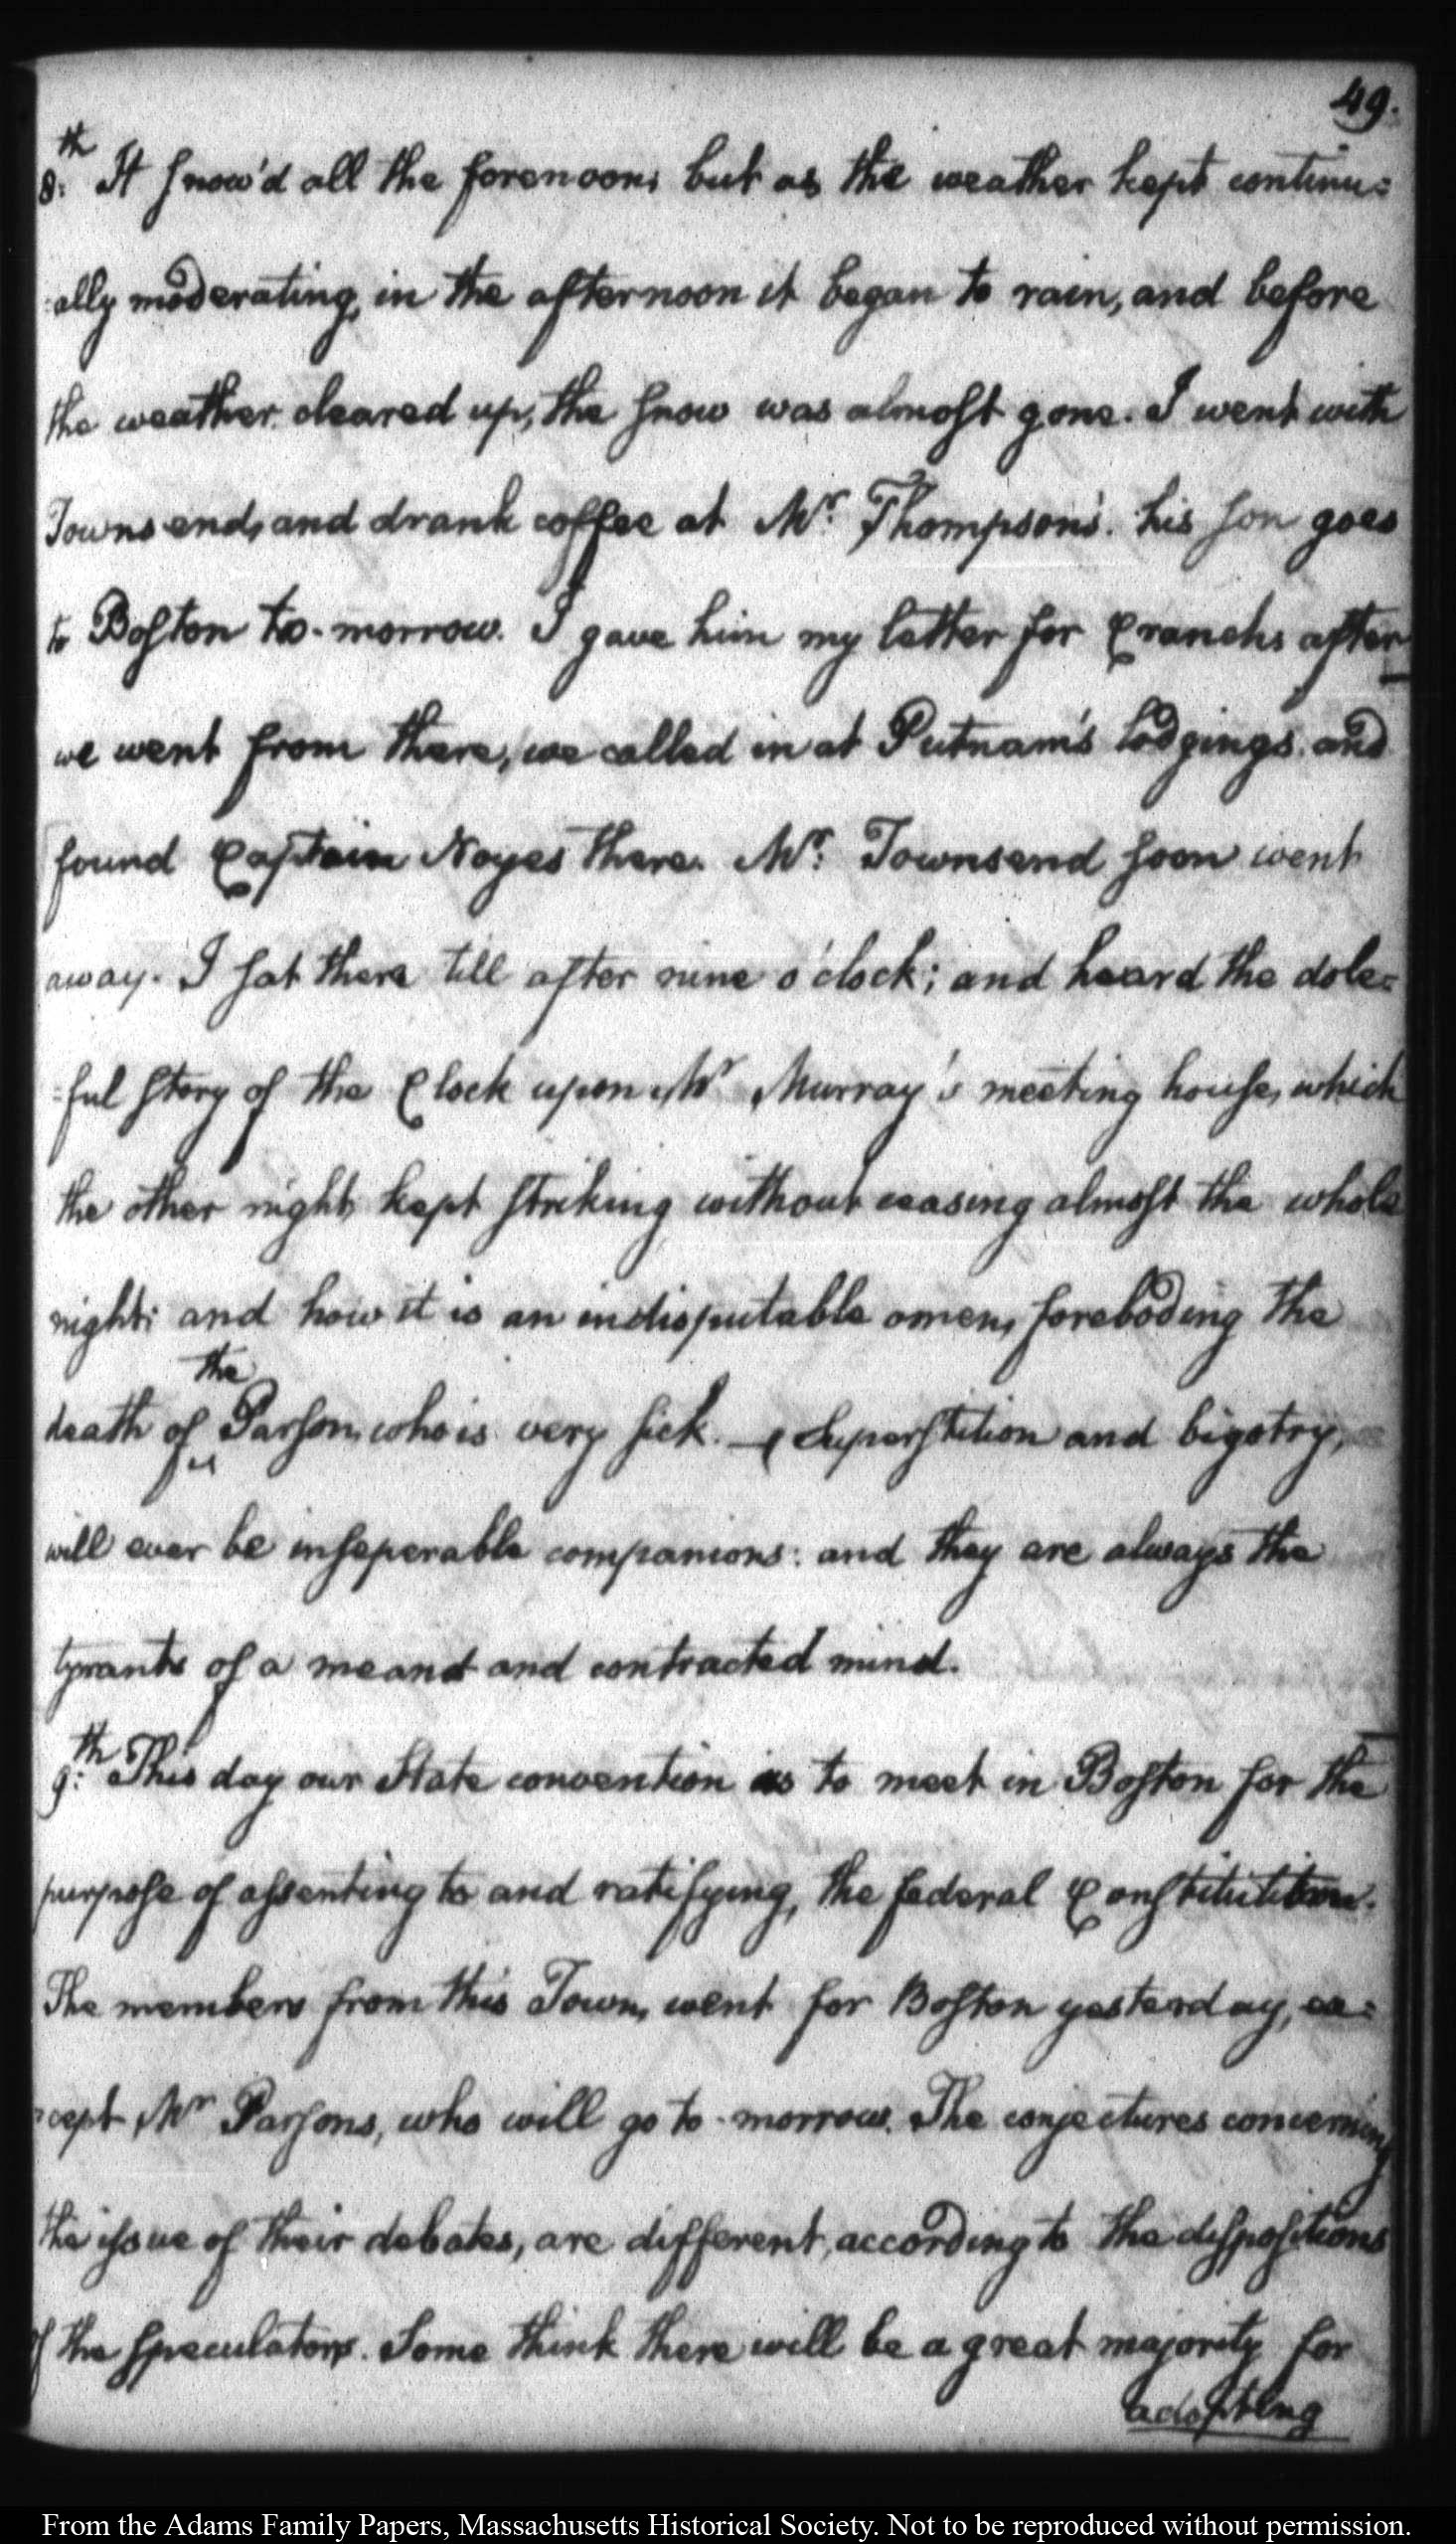 49.
8:th It snow'd all the forenoon, but as the weather kept continu=
ally moderating, in the afternoon it began to rain, and before
the weather cleared up, the snow was almost gone. I went with
Townsend, and drank coffee at Mr: Thompson's. his son goes
to Boston to-morrow. I gave him my letter for Cranch, after
we went from there, we called in at Putnam's lodgings. and
found Captain Noyes there. Mr: Townsend soon went
away. I sat there till after nine o'clock; and heard the dole=
=ful story of the Clock upon Mr Murray's meeting house, which
the other night, kept striking without ceasing almost the whole
night: and how it is an indisputable omen, foreboding the
death of the Parson, who is very sick. — Superstition and bigotry,
will ever be inseperable companions: and they are always the
tyrants of a meand and contracted mind.
9:th This day our State convention is to meet in Boston for the
purpose of assenting to and ratifying, the federal Constitution.
The members from this Town, went for Boston yesterday, ex=
=cept Mr Parsons, who will go to-morrow. The conjectures concerning
the issue of their debates, are different, according to the dispositions
of the speculators. Some think there will be a great majority for
adopting
From the Adams Family Papers, Massachusetts Historical Society. Not to be reproduced without permission.